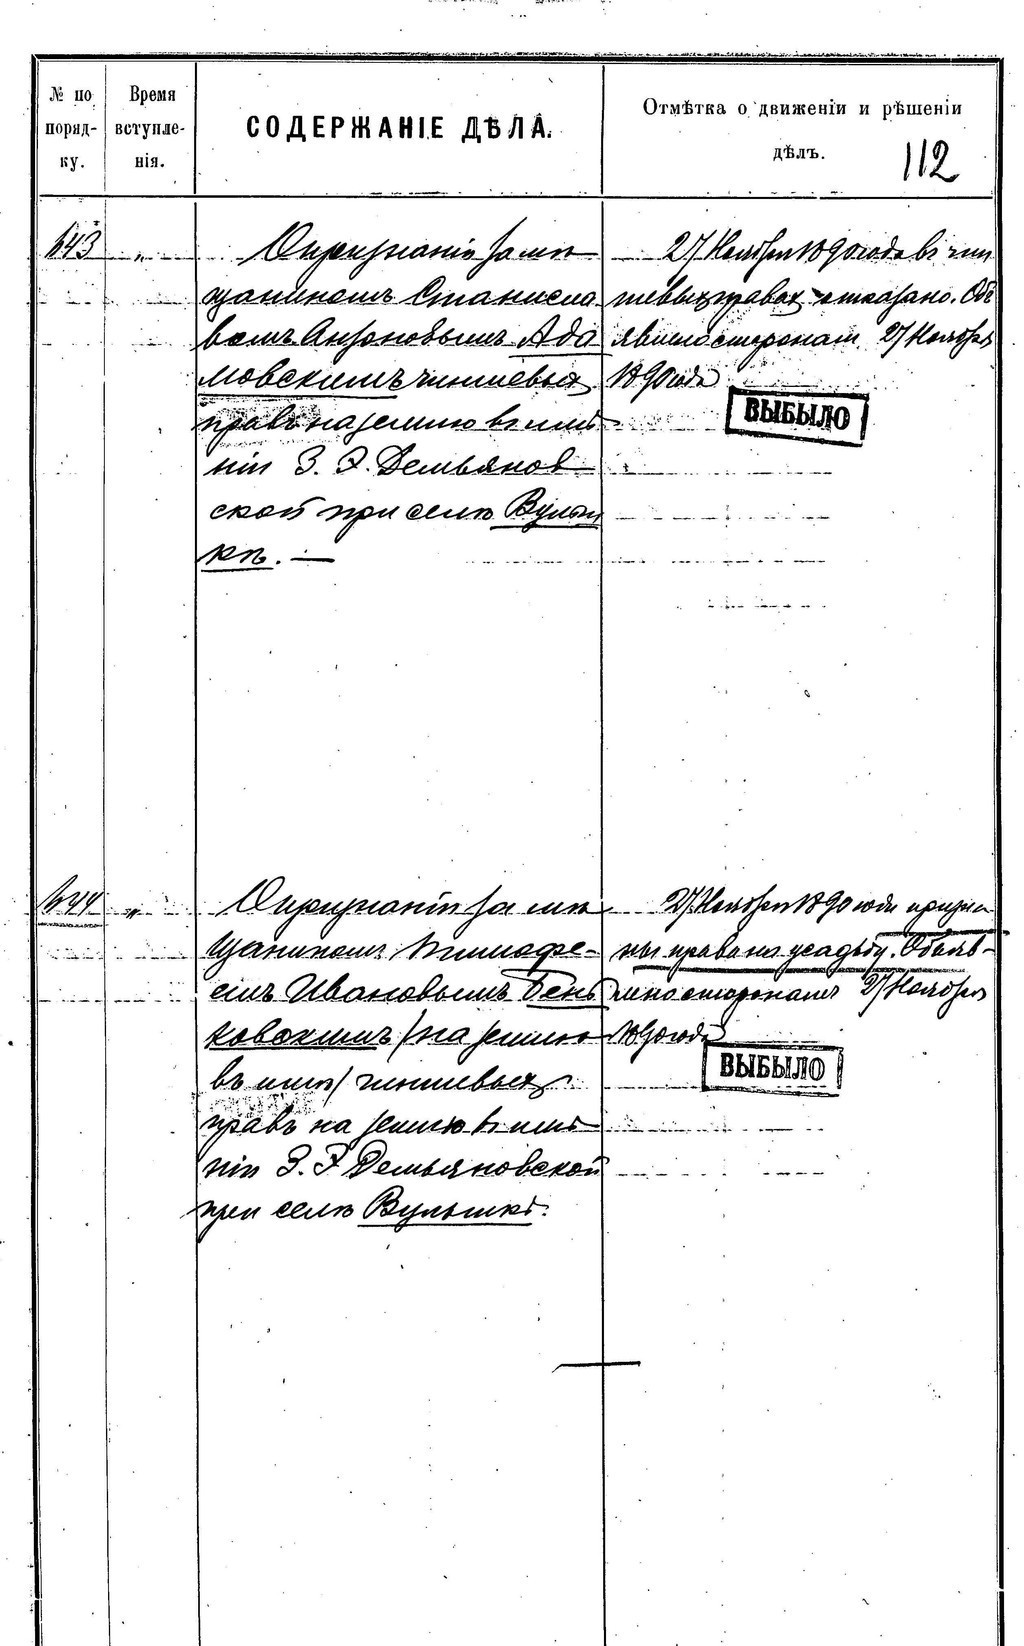 № по порядку.
Время вступленія.
СОДЕРЖАНІЕ ДѢЛА.
Отмѣтка о движеніи и рѣшеніи
дѣлъ.
112
643
"
О признаніи за мѣ
щаниномъ Станисла
вомъ Антоновымъ Ада
мовскимъ чиншевыхъ
правъ на землю въ имѣ
ніи З. Э. Демьянов
ской при селѣ Вульш
кѣ. —
27 Ноября 1890 года въ чин
шевыхъ правахъ отказано. Объ
явлено сторонамъ 27 Ноября
1890 года
ВЫБЫЛО
644
"
О признаніи за мѣ
щаниномъ Тимофе-
емъ Ивановымъ Бень
ковскимъ /на землю
въ имѣ/ чиншевыхъ
правъ на землю въ имѣ
ніи З. Э. Демьяновской
при селѣ Вульшкѣ.
27 Ноября 1890 года призна
ны права на усадьбу. Объяв-
лено сторонамъ 27 Ноября
1890 года
ВЫБЫЛО